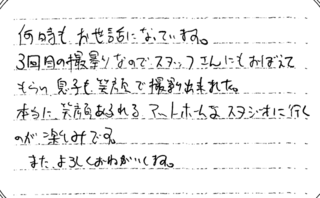 何時も お世話になっています。
3回目の撮影なのでスタッフさんにもおぼえて
もらい 息子も笑顔で撮影出来ました。
本当に 笑顔あふれる アットホームな スタジオに行く
のが 楽しみです。
また よろしくおねがいします。